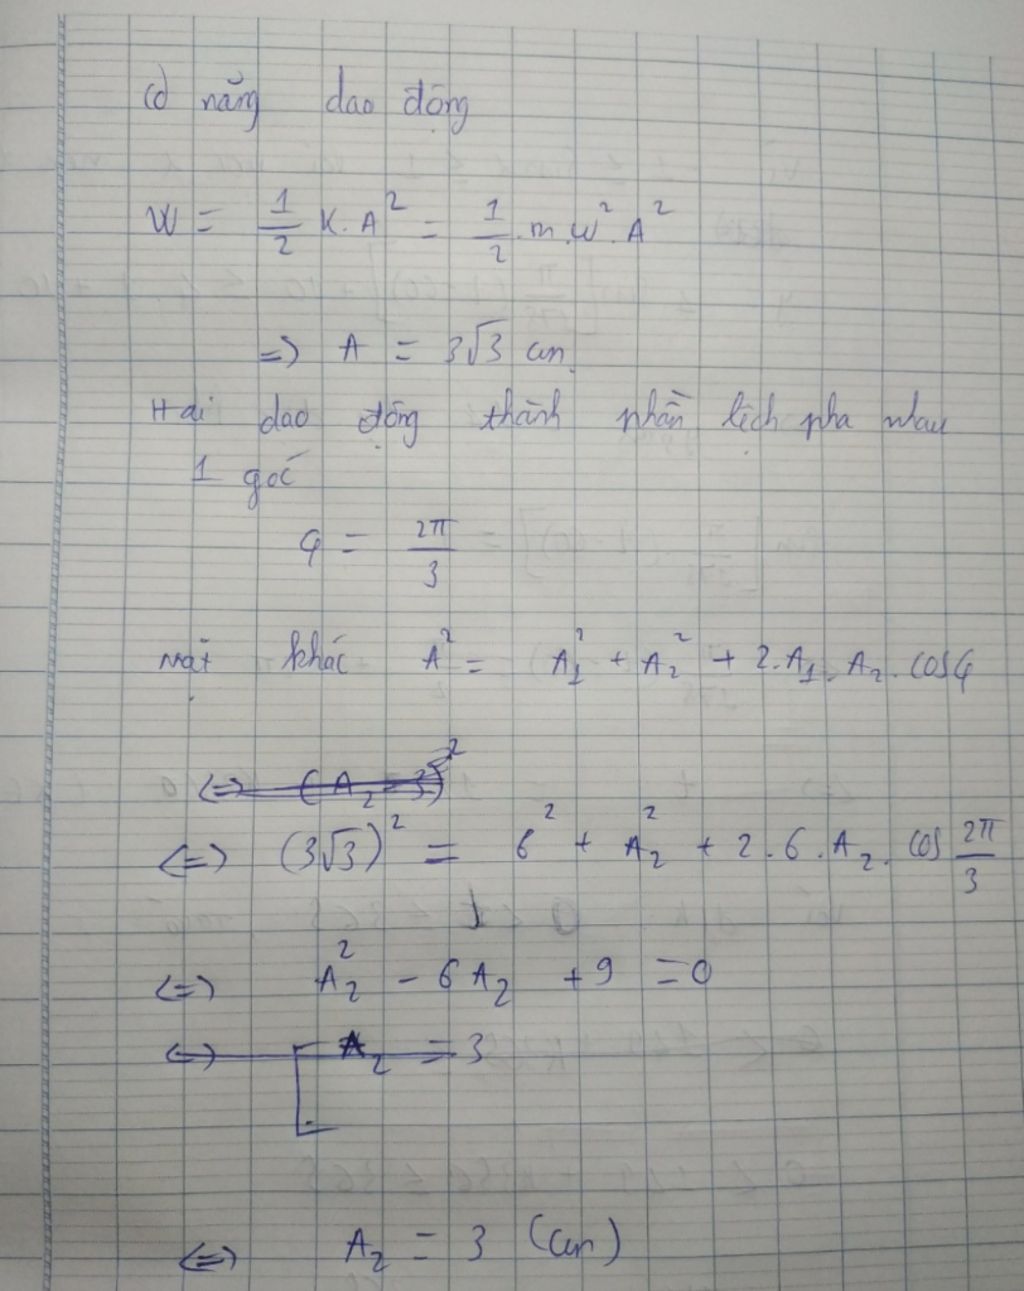 Cơ năng dao động
W = \frac{1}{2} K.A² = \frac{1}{2}.m.W².A²
=> A = 3√3 cm.
Hai dao động thành phần lệch pha nhau
1 góc
φ = \frac{2π}{3}
Mặt khác A² = A₁² + A₂² + 2.A₁.A₂.cosφ
<=> (A₂ - 3)²
<=> (3√3)² = 6² + A₂² + 2.6.A₂.cos \frac{2π}{3}
<=> A₂² - 6A₂ + 9 = 0
<=> [ A₂ = 3
<=> A₂ = 3 (cm)